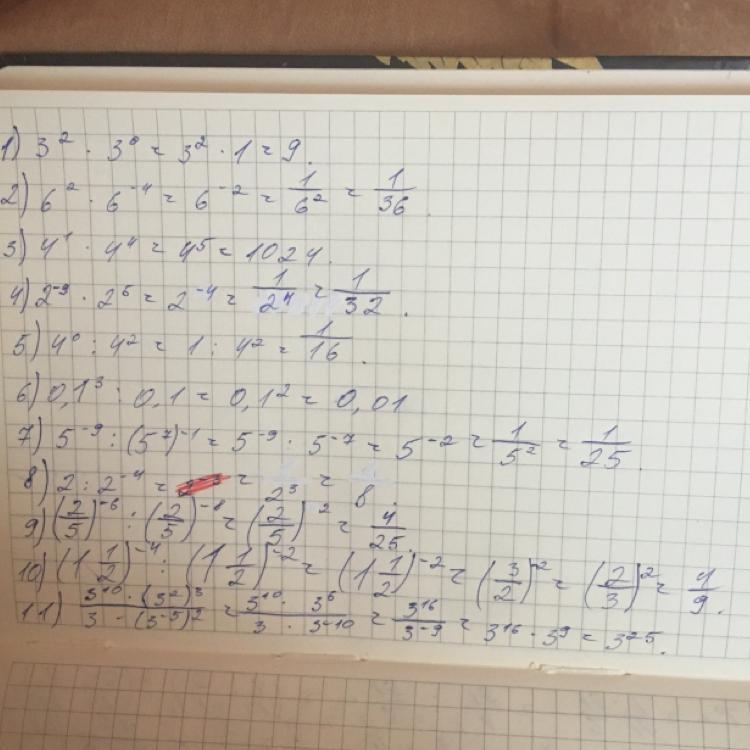 1) 3² · 3⁰ = 3² · 1 = 9.
2) 6² · 6⁻⁴ = 6⁻² = 1/6² = 1/36.
3) 4¹ · 4⁴ = 4⁵ = 1024.
4) 2⁻⁹ · 2⁵ = 2⁻⁴ = 1/2⁴ = 1/32.
5) 4⁰ : 4² = 1 : 4² = 1/16.
6) 0,1³ : 0,1 = 0,1² = 0,01
7) 5⁻⁹ : (5⁻⁷)⁻¹ = 5⁻⁹ : 5⁻⁷ = 5⁻² = 1/5² = 1/25.
8) 2 : 2⁻⁴ = = /2³ = /8.
9) (2/5)⁻⁶ : (2/5)⁻⁸ = (2/5)² = 4/25.
10) (1 1/2)⁻⁴ : (1 1/2)⁻² = (1 1/2)⁻² = (3/2)⁻² = (2/3)² = 4/9.
11) 3¹⁰ · (3²)³/3 · (3⁻⁵)² = 3¹⁰ · 3⁶/3 · 3⁻¹⁰ = 3¹⁶/3⁻⁹ = 3¹⁶ · 3⁹ = 3²⁵.